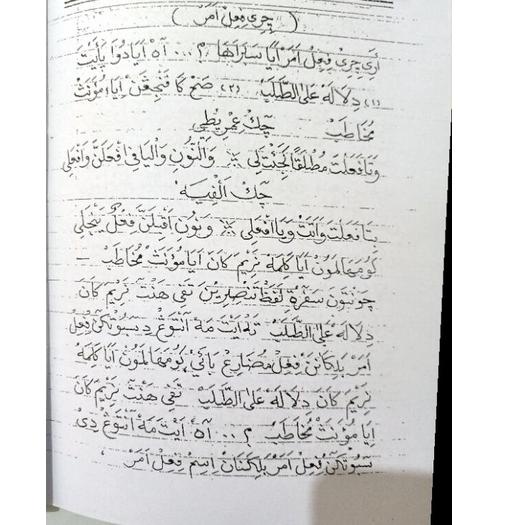 ( چري فعل امر )
اري چري فعل امر ايا سباراها ؟ ... اه ايادوا يأيت
(١) دلالة على الطلب (٢) صح كا فنجغن ايا مؤنث
مخاطب چك عمريطي
وتا فعلت مطلقا كجئت لي * والنون واليا في افعلن وافعلي
چك الفية
بتا فعلت واتت ويا افعلي * ونون اقبلن فعل ينجلي
كومهالمون ايا كلمة نريم كان ايا مؤنث مخاطب
چونتون سفرة لفظ تنصرين تفي هنت نريم كان
دلالة على الطلب ايت مه انتوغ دسبوتكن فعل
امر بلكانن فعل مضارع باني كومهالمون ايا كلمة
نريم كان دلالة على الطلب تفي هنت نريم كان
ايا مؤنث مخاطب ؟ ... اه ايت مه انتوغ دي
سبوتكن فعل امر بلكنان اسم فعل امر